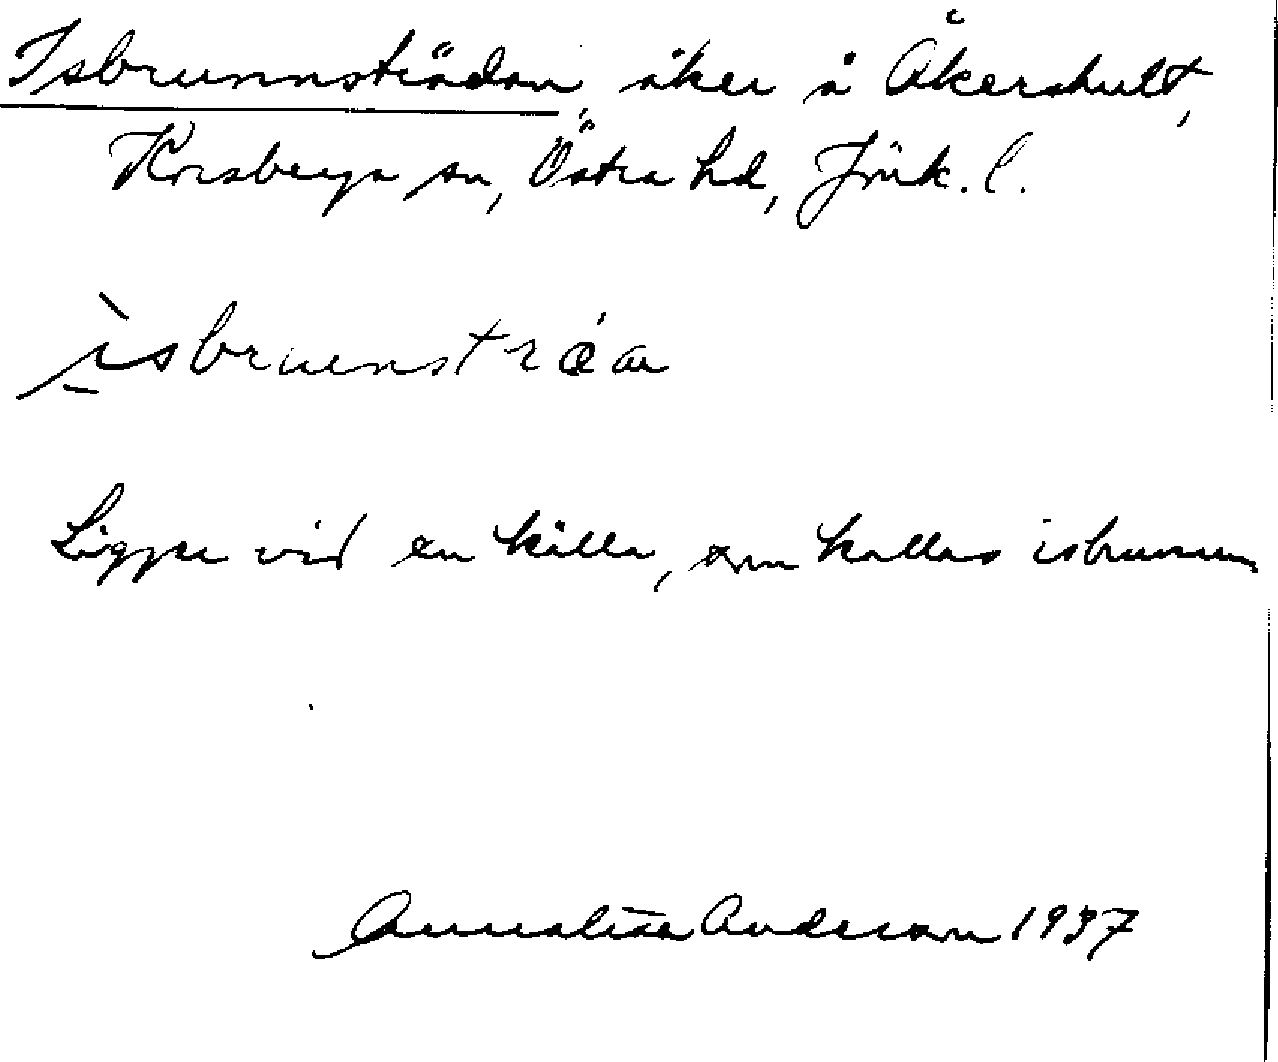 Isbrunnsträdan, åker å Åkershult,
Korsberga sn, Östra hd, Jönk. l.
ìsbrunstrǿa
Ligger vid en källa, som kallas isbrunnen
Annalisa Anderson 1937